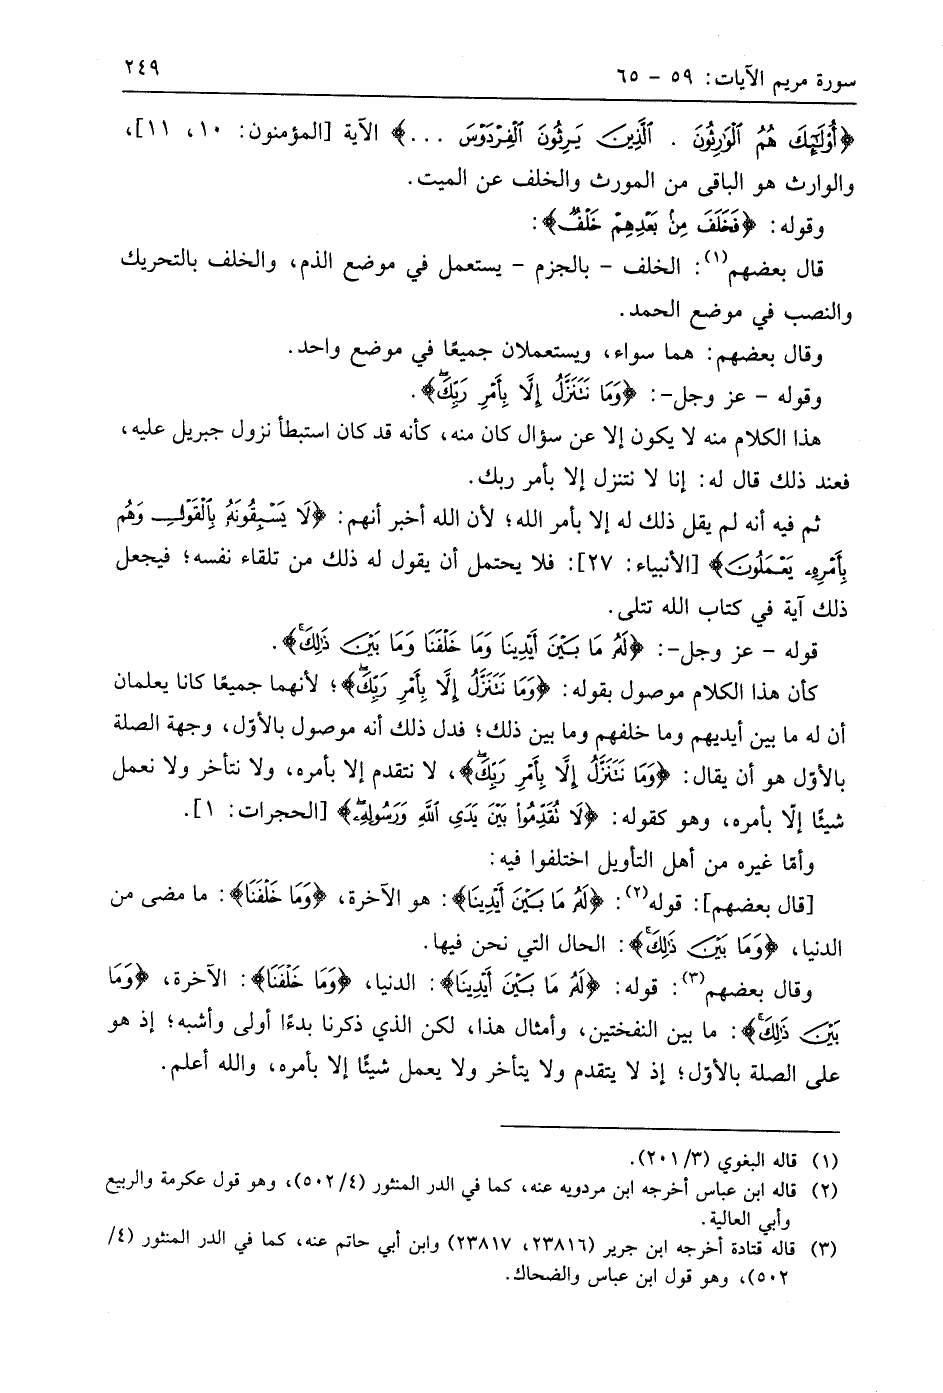 سورة مريم الآيات: ٥٩ - ٦٥
٢٤٩
﴿أُوْلَٰٓئِكَ هُمُ ٱلْوَٰرِثُونَ . ٱلَّذِينَ يَرِثُونَ ٱلْفِرْدَوْسَ ...﴾ الآية [المؤمنون: ١٠، ١١]،
والوارث هو الباقى من المورث والخلف عن الميت.
وقوله: ﴿فَخَلَفَ مِنۢ بَعْدِهِمْ خَلْفٌ﴾:
قال بعضهم(١): الخلف - بالجزم - يستعمل في موضع الذم، والخلف بالتحريك
والنصب في موضع الحمد.
وقال بعضهم: هما سواء، ويستعملان جميعًا في موضع واحد.
وقوله - عز وجل-: ﴿وَمَا نَتَنَزَّلُ إِلَّا بِأَمْرِ رَبِّكَۖ﴾.
هذا الكلام منه لا يكون إلا عن سؤال كان منه، كأنه قد كان استبطأ نزول جبريل عليه،
فعند ذلك قال له: إنا لا نتنزل إلا بأمر ربك.
ثم فيه أنه لم يقل ذلك له إلا بأمر الله؛ لأن الله أخبر أنهم: ﴿لَا يَسْبِقُونَهُۥ بِٱلْقَوْلِ وَهُم
بِأَمْرِهِۦ يَعْمَلُونَ﴾ [الأنبياء: ٢٧]: فلا يحتمل أن يقول له ذلك من تلقاء نفسه؛ فيجعل
ذلك آية في كتاب الله تتلى.
قوله - عز وجل-: ﴿لَهُۥ مَا بَيْنَ أَيْدِينَا وَمَا خَلْفَنَا وَمَا بَيْنَ ذَٰلِكَۚ﴾.
كأن هذا الكلام موصول بقوله: ﴿وَمَا نَتَنَزَّلُ إِلَّا بِأَمْرِ رَبِّكَۖ﴾؛ لأنهما جميعًا كانا يعلمان
أن له ما بين أيديهم وما خلفهم وما بين ذلك؛ فدل ذلك أنه موصول بالأوّل، وجهة الصلة
بالأوّل هو أن يقال: ﴿وَمَا نَتَنَزَّلُ إِلَّا بِأَمْرِ رَبِّكَۖ﴾، لا نتقدم إلا بأمره، ولا نتأخر ولا نعمل
شيئًا إلّا بأمره، وهو كقوله: ﴿لَا تُقَدِّمُوا۟ بَيْنَ يَدَىِ ٱللَّهِ وَرَسُولِهِۦۖ﴾ [الحجرات: ١].
وأمّا غيره من أهل التأويل اختلفوا فيه:
[قال بعضهم]: قوله(٢): ﴿لَهُۥ مَا بَيْنَ أَيْدِينَا﴾: هو الآخرة، ﴿وَمَا خَلْفَنَا﴾: ما مضى من
الدنيا، ﴿وَمَا بَيْنَ ذَٰلِكَۚ﴾: الحال التي نحن فيها.
وقال بعضهم(٣): قوله: ﴿لَهُۥ مَا بَيْنَ أَيْدِينَا﴾: الدنيا، ﴿وَمَا خَلْفَنَا﴾: الآخرة، ﴿وَمَا
بَيْنَ ذَٰلِكَۚ﴾: ما بين النفختين، وأمثال هذا، لكن الذي ذكرنا بدءًا أولى وأشبه؛ إذ هو
على الصلة بالأوّل؛ إذ لا يتقدم ولا يتأخر ولا يعمل شيئًا إلا بأمره، والله أعلم.
(١) قاله البغوي (٢٠١/٣).
(٢) قاله ابن عباس أخرجه ابن مردويه عنه، كما في الدر المنثور (٥٠٢/٤)، وهو قول عكرمة والربيع
وأبي العالية.
(٣) قاله قتادة أخرجه ابن جرير (٢٣٨١٦، ٢٣٨١٧) وابن أبي حاتم عنه، كما في الدر المنثور (٤/
٥٠٢)، وهو قول ابن عباس والضحاك.